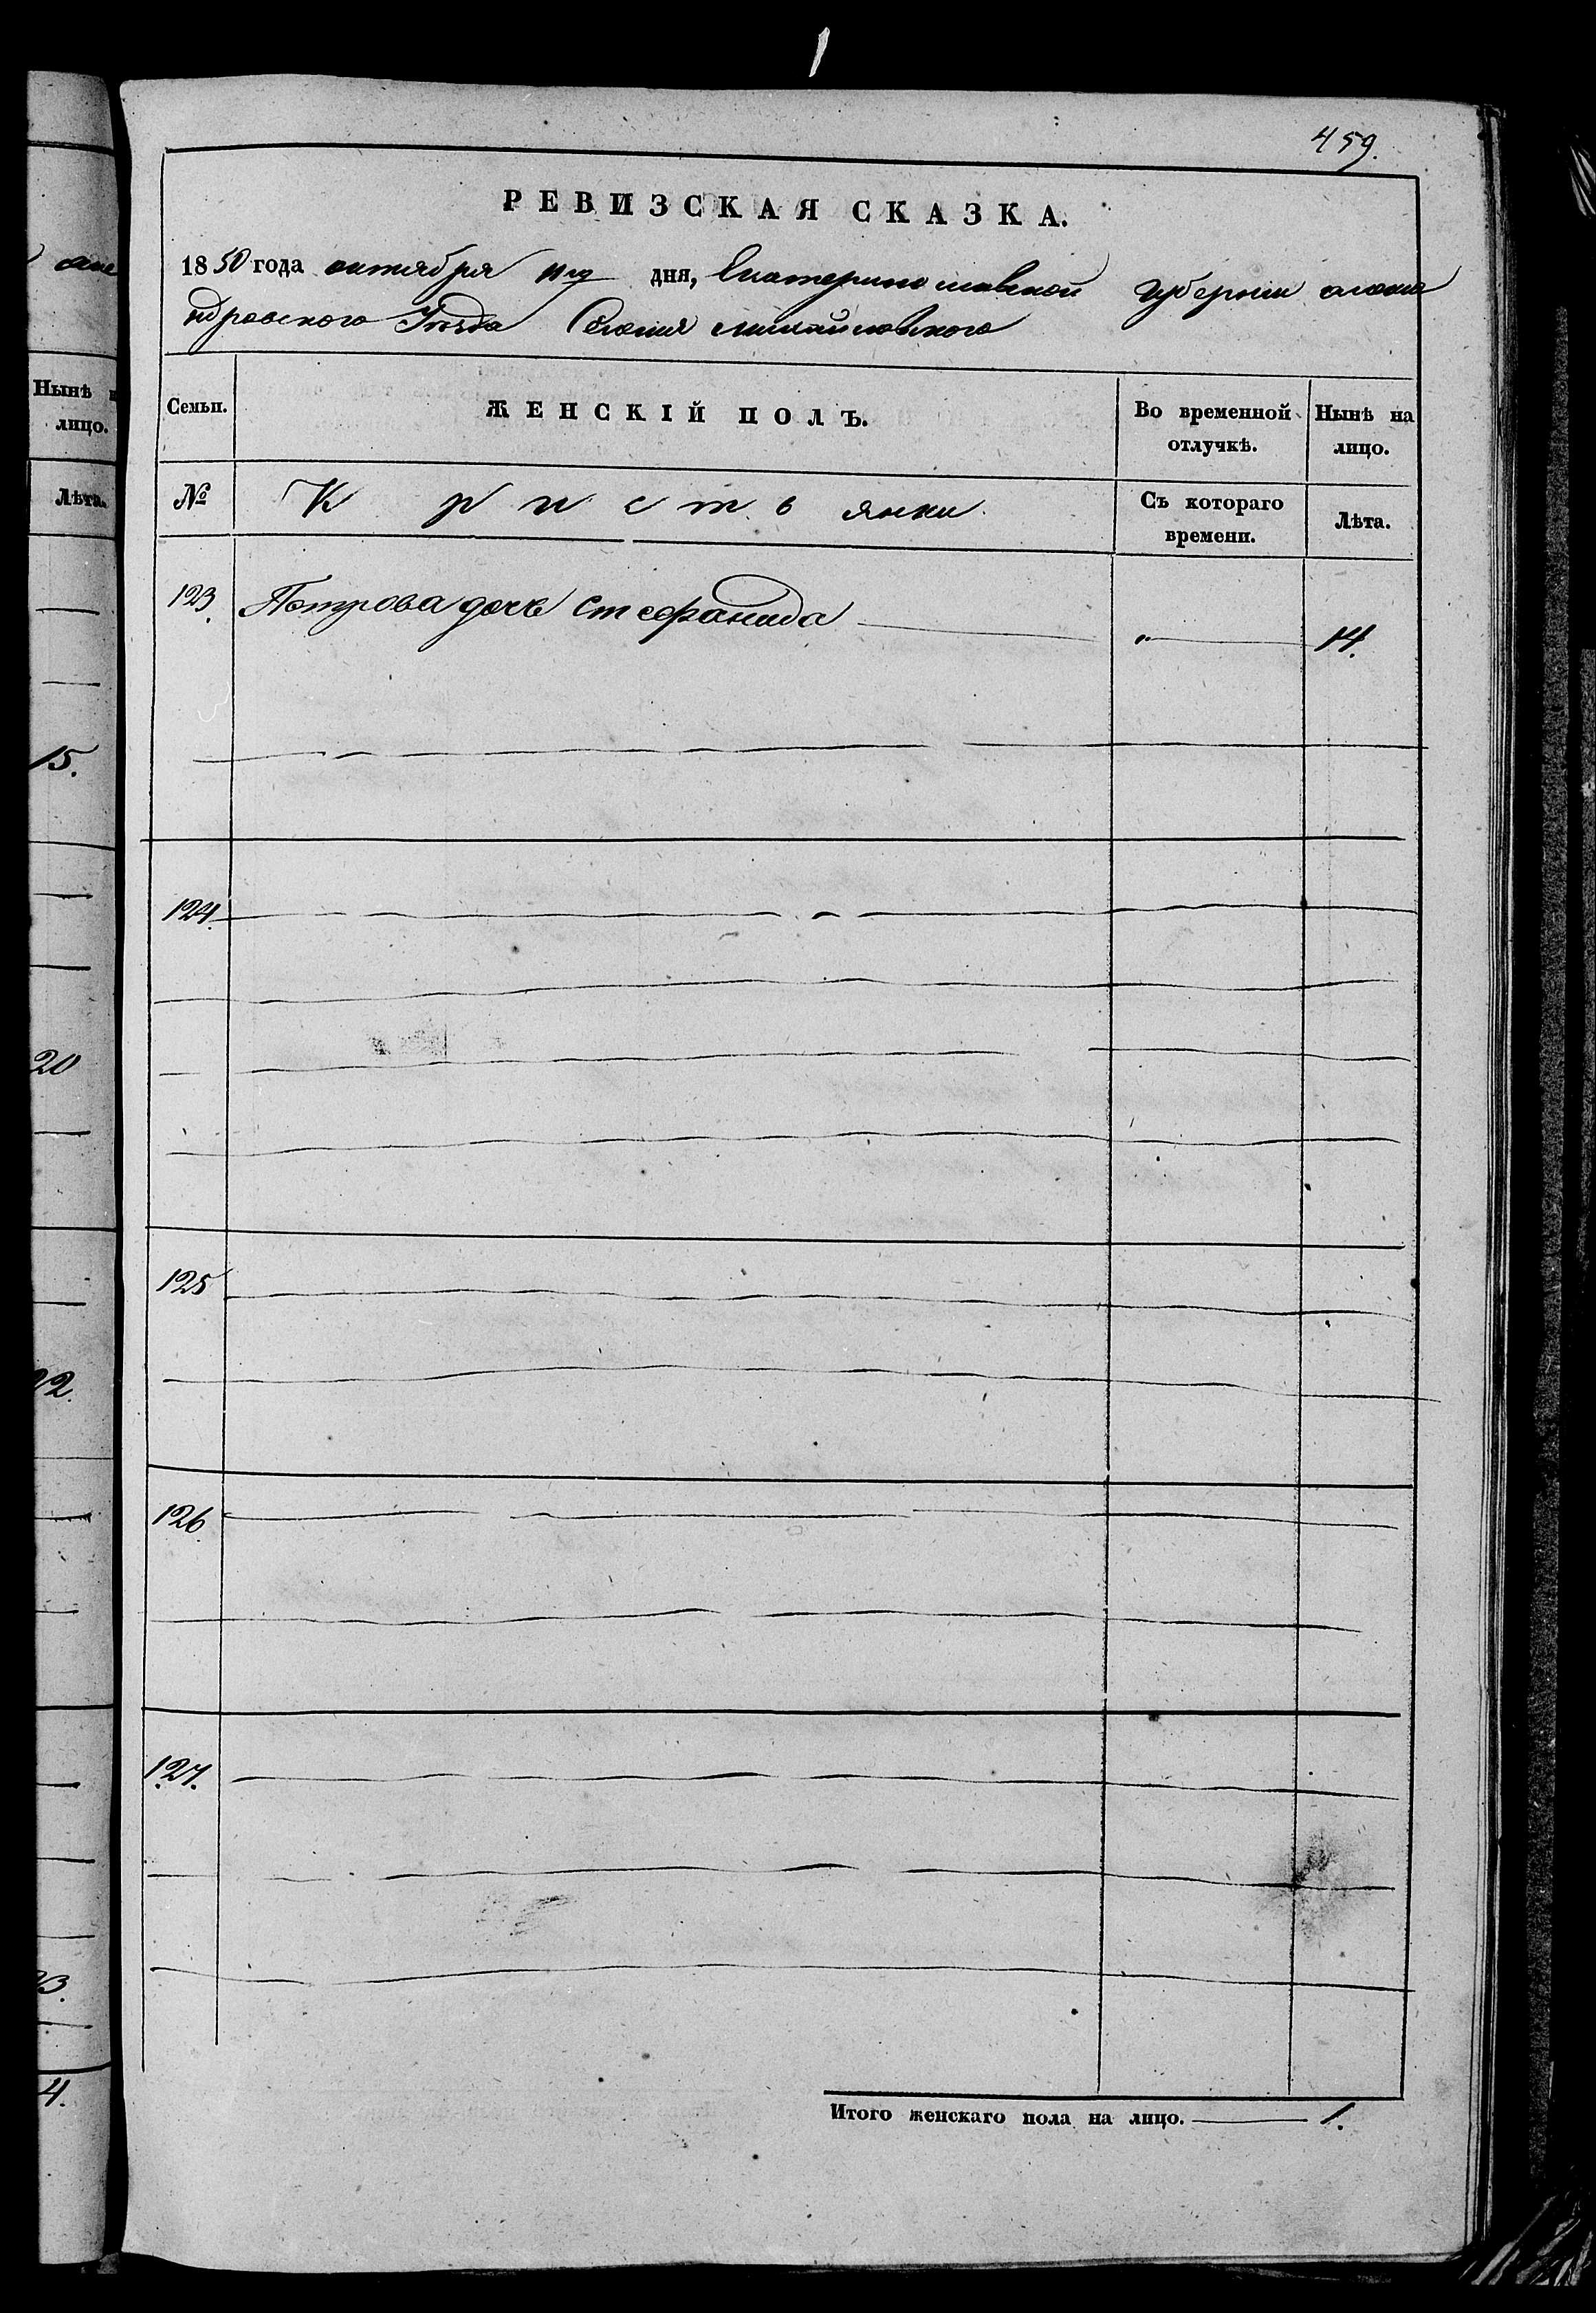 459.
РЕВИЗСКАЯ СКАЗКА.
1850 года октября дня, Екатеринославской губерніи алекса
ндровского Уѣзда Селения михайловского
Семьи.
ЖЕНСКІЙ ПОЛЪ.
Во временной отлучкѣ.
Нынѣ на лицо.
№
Кристьянки
Съ котораго времени.
Лѣта.
123. Петрова дочь Стефанида " 14.
124.
125
126
127.
Итого женскаго пола на лицо. 1.
Нынѣ
лицо.
Лѣта.
15.
20
22.
4.